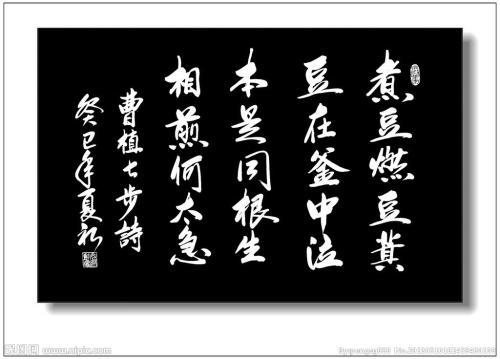 煮豆燃豆萁
豆在釜中泣
本是同根生
相煎何太急
曹植七步詩
癸巳年夏初
www.nipic.com